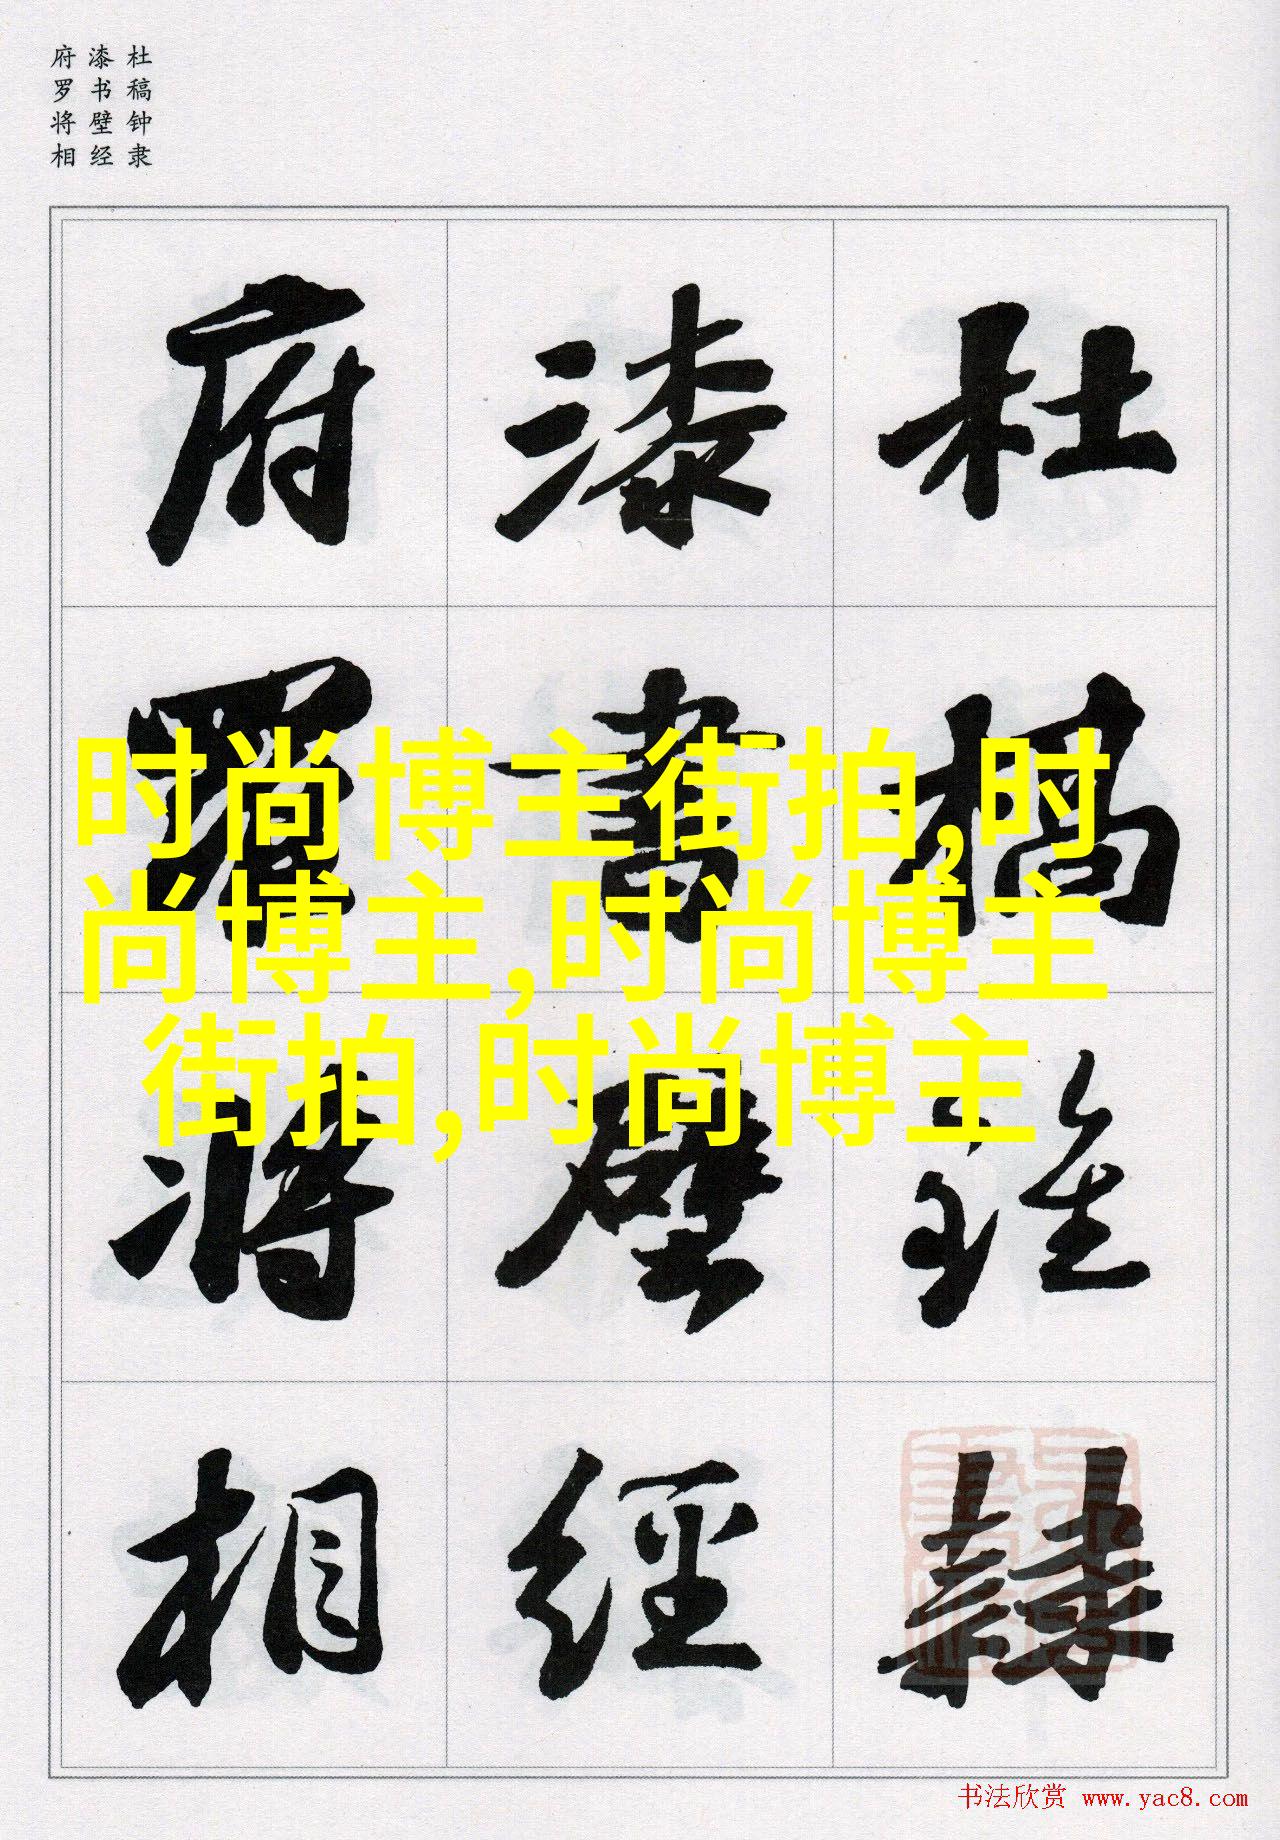 杜稿钟隶
漆书壁经
府罗将相
杜稿鍾隸
漆書壁經
府羅將相
时尚博主街拍,时
尚博主,时尚博主
街拍,时尚博主
书法欣赏 www.yac8.com